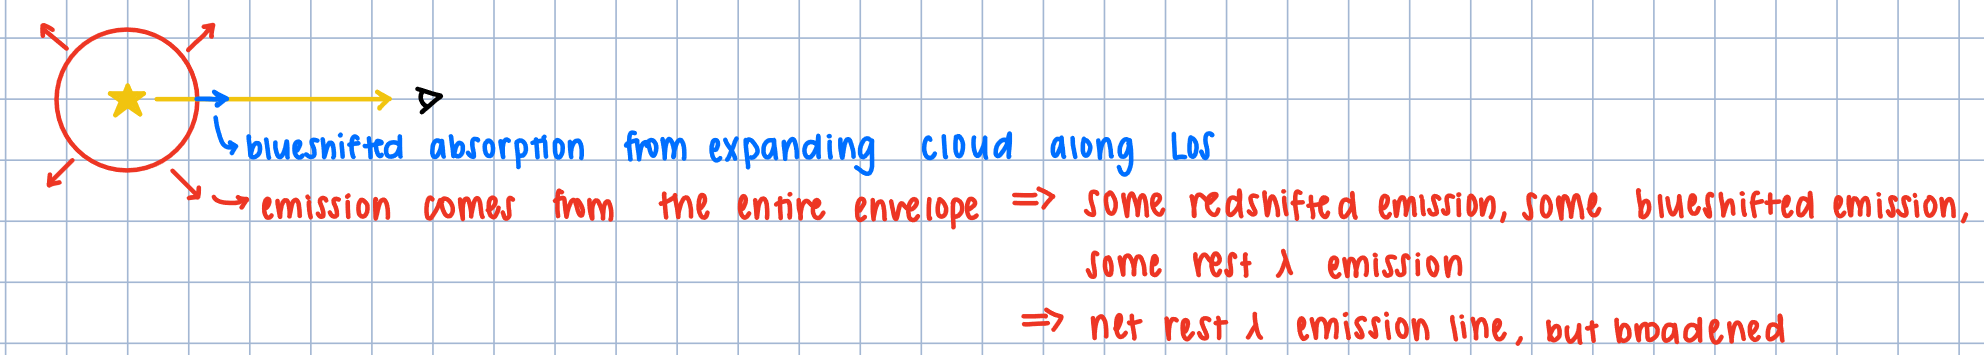 blueshifted absorption from expanding cloud along LOS
emission comes from the entire envelope ⇒ some redshifted emission, some blueshifted emission,
some rest λ emission
⇒ net rest λ emission line, but broadened